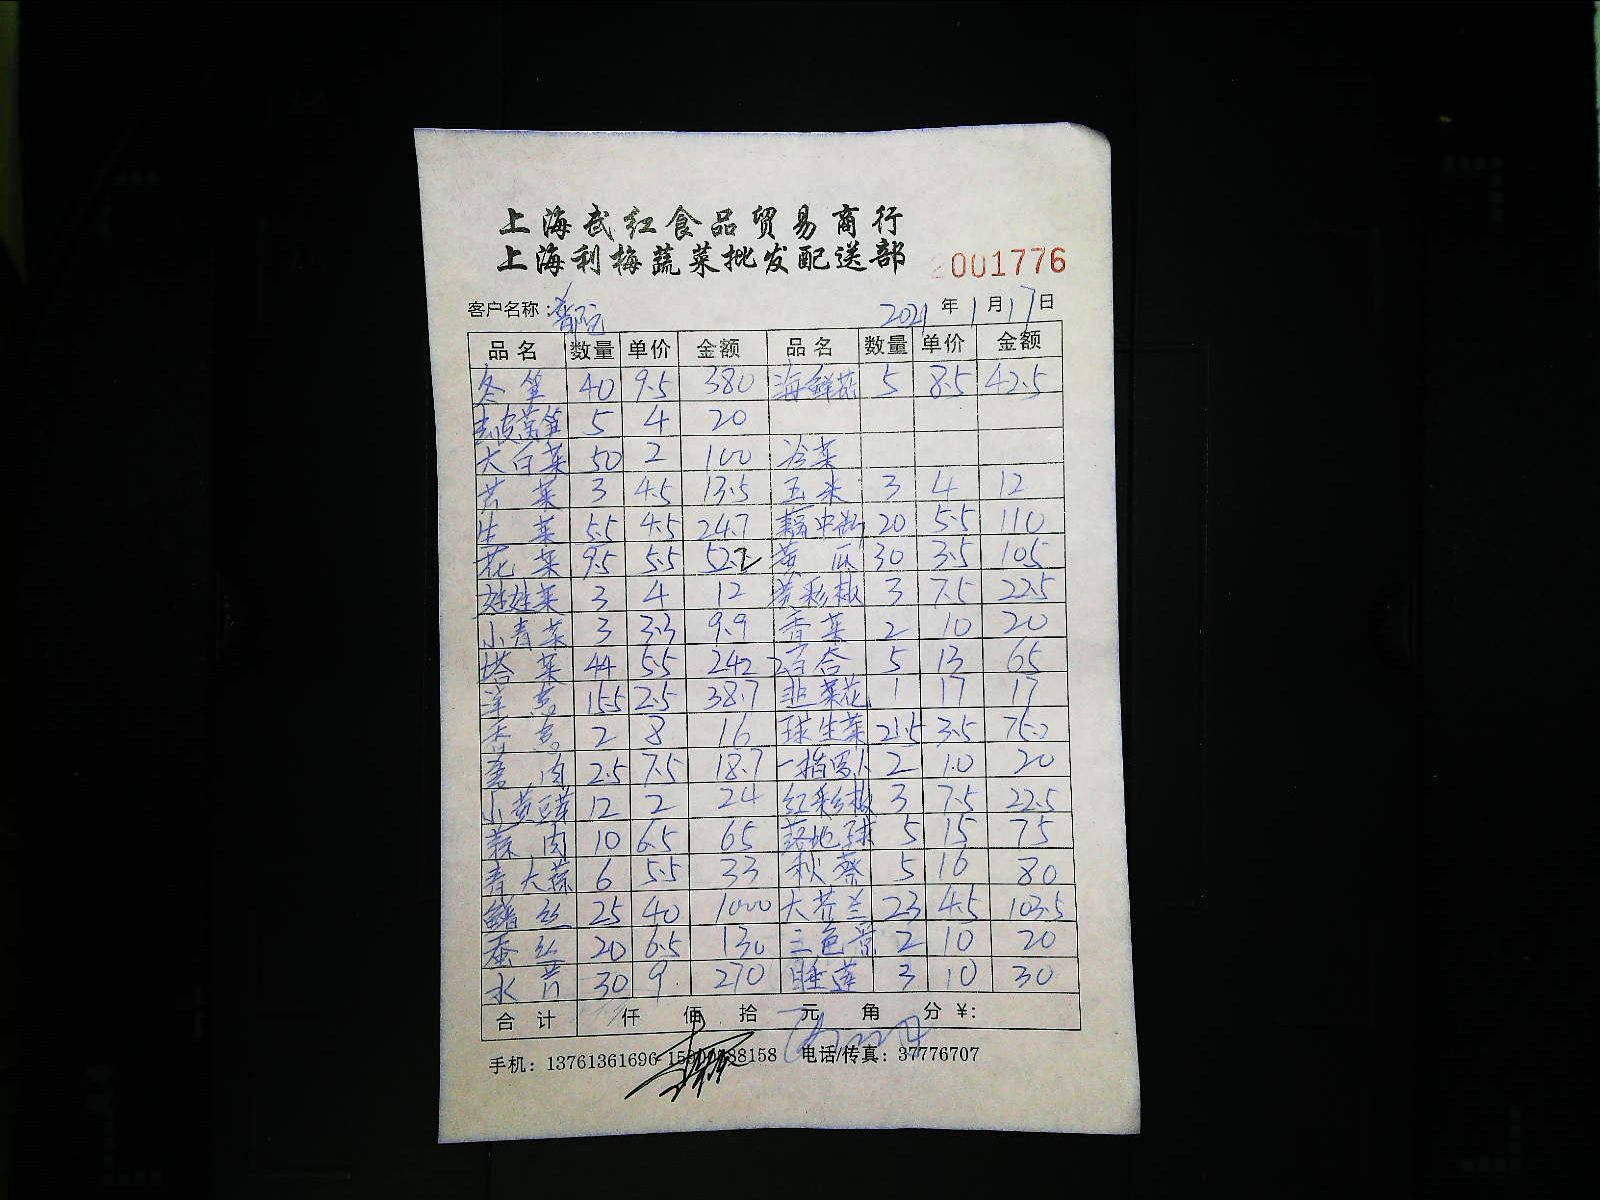 上海武红食品贸易商行
上海利梅蔬菜批发配送部 2001776
客户名称: 2021 年 1 月 17 日
品名 数量 单价 金额 品名 数量 单价 金额
冬笋 40 9.5 380 海鲜菇 5 8.5 42.5
去皮莴笋 5 4 20
大白菜 50 2 100 冷菜
芹菜 3 4.5 13.5 玉米 3 4 12
生菜 5.5 4.5 24.7 藕中断 20 5.5 110
花菜 9.5 5.5 52.2 黄瓜 30 3.5 105
娃娃菜 3 4 12 黄彩椒 3 7.5 22.5
小青菜 3 3.3 9.9 香菜 2 10 20
塔菜 44 5.5 242 百合 5 13 65
洋葱 15.5 2.5 38.7 韭菜花 1 17 17
香葱 2 8 16 球生菜 21.5 3.5 75.2
姜肉 2.5 7.5 18.7 2 10 20
小黄豆芽 12 2 24 红彩椒 3 7.5 22.5
蒜肉 10 6.5 65 落地球 5 15 75
青大蒜 6 5.5 33 秋葵 5 16 80
鳝丝 25 40 1000 大芥兰 23 4.5 103.5
蚕丝 20 6.5 130 三色堇 2 10 20
水 30 9 270 睡莲 3 10 30
合计 仟 佰 拾 元 角 分 ¥:
手机: 13761361696 电话/传真: 37776707